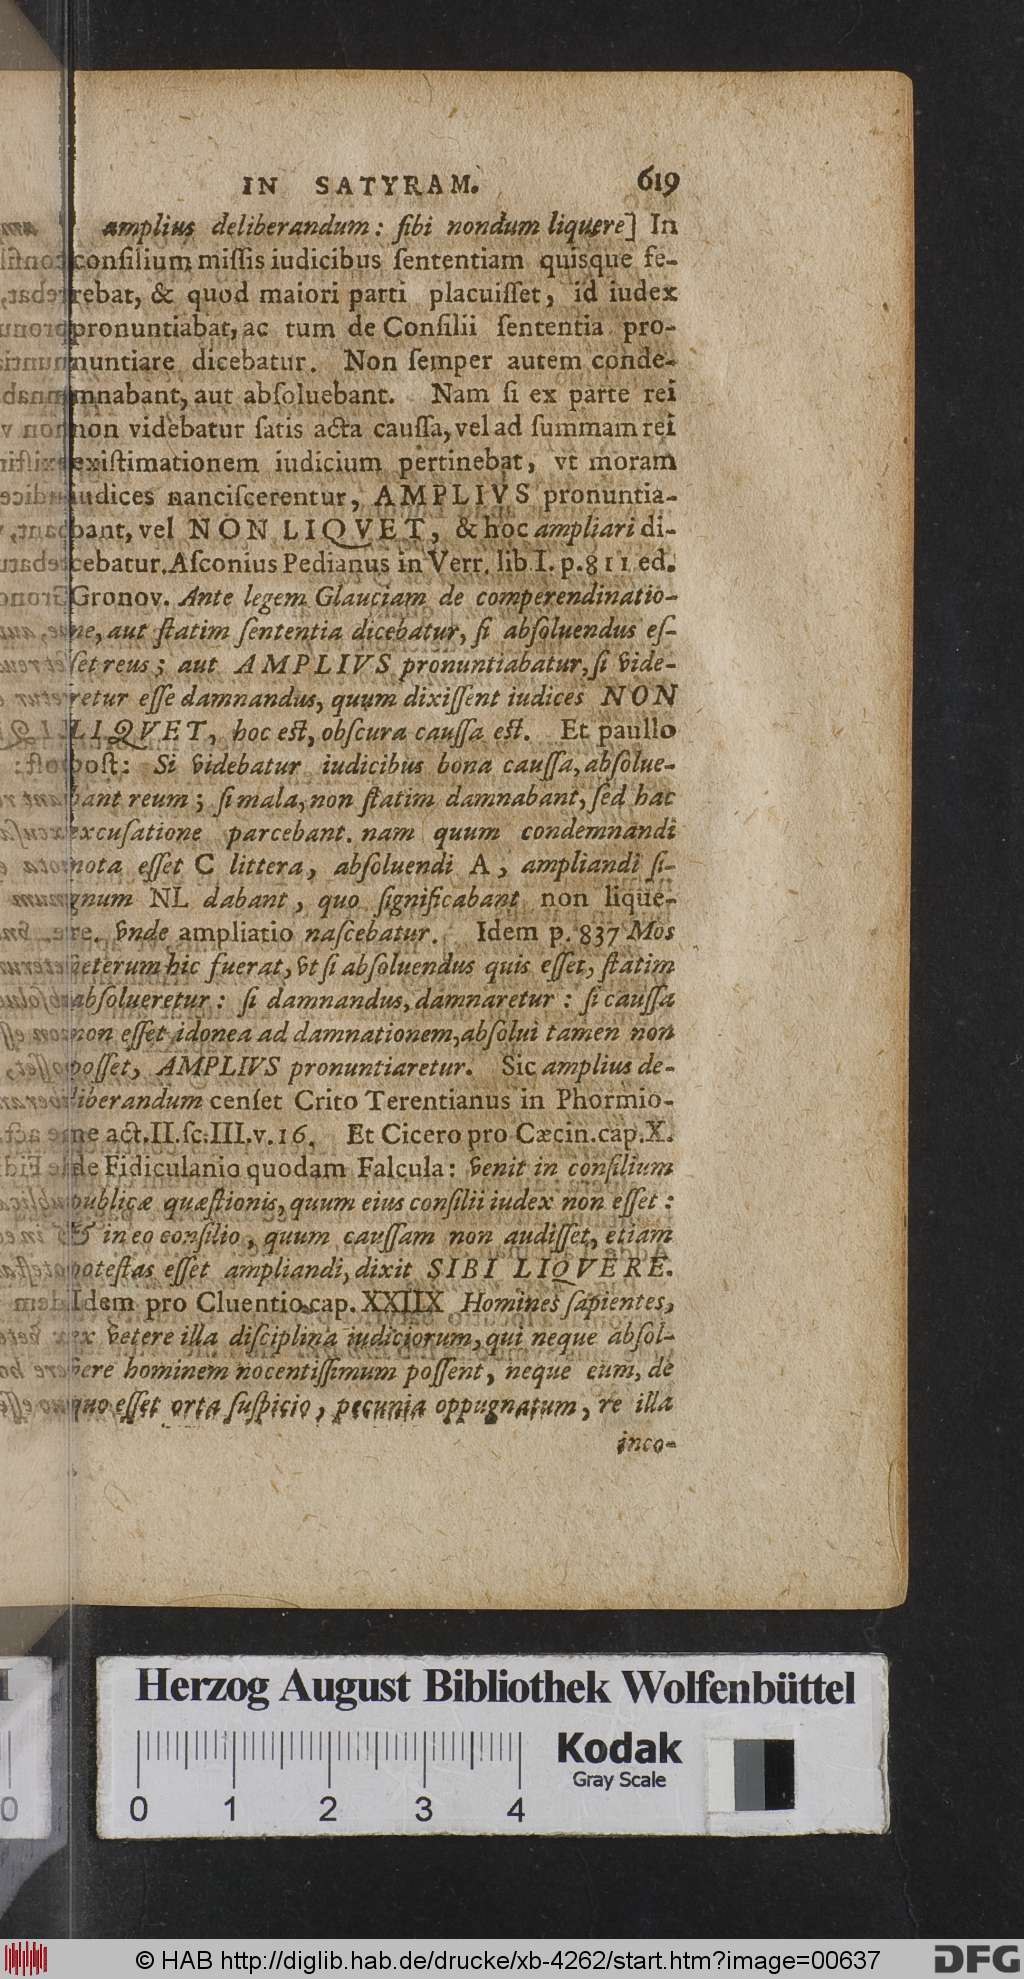 IN SATYRAM. 619
amplius deliberandum: ſibi nondum liquere] In
conſilium miſſis iudicibus ſententiam quisque fe-
rebat, & quod maiori parti placuiſſet, id iudex
pronuntiabat, ac tum de Conſilii ſententia pro-
nuntiare dicebatur. Non ſemper autem conde-
mnabant, aut abſoluebant. Nam ſi ex parte rei
non videbatur ſatis acta cauſſa, vel ad ſummam rei
exiſtimationem iudicium pertinebat, vt moram
iudices nanciſcerentur, AMPLIVS pronuntia-
bant, vel NON LIQVET, & hoc ampliari di-
cebatur. Aſconius Pedianus in Verr. lib. I. p. 811 ed.
Gronov. Ante legem Glauciam de comperendinatio-
ne, aut ſtatim ſententia dicebatur, ſi abſoluendus eſ-
ſet reus; aut AMPLIVS pronuntiabatur, ſi vide-
retur eſſe damnandus, quum dixiſſent iudices NON
LIQVET, hoc eſt, obſcura cauſſa eſt. Et paullo
poſt: Si videbatur iudicibus bona cauſſa, abſolue-
bant reum; ſi mala, non ſtatim damnabant, ſed hac
excuſatione parcebant. nam quum condemnandi
nota eſſet C littera, abſoluendi A, ampliandi ſi-
gnum NL dabant, quo ſignificabant non lique-
re. vnde ampliatio naſcebatur. Idem p. 837 Mos
veterum hic fuerat, vt ſi abſoluendus quis eſſet, ſtatim
abſolueretur: ſi damnandus, damnaretur: ſi cauſſa
non eſſet idonea ad damnationem, abſolui tamen non
poſſet, AMPLIVS pronuntiaretur. Sic amplius de-
liberandum cenſet Crito Terentianus in Phormio-
ne act. II. ſc. III. v. 16. Et Cicero pro Cæcin. cap. X.
de Fidiculanio quodam Falcula: venit in conſilium
publicæ quæſtionis, quum eius conſilii iudex non eſſet:
& in eo conſilio, quum cauſſam non audiſſet, etiam
poteſtas eſſet ampliandi, dixit SIBI LIQVERE.
Idem pro Cluentio cap. XXIIX Homines ſapientes,
ex vetere illa diſciplina iudiciorum, qui neque abſol-
vere hominem nocentiſſimum poſſent, neque eum, de
quo eſſet orta ſuſpicio, pecunia oppugnatum, re illa
inco-
Herzog August Bibliothek Wolfenbüttel
Kodak
Gray Scale
0 1 2 3 4
© HAB http://diglib.hab.de/drucke/xb-4262/start.htm?image=00637
DFG